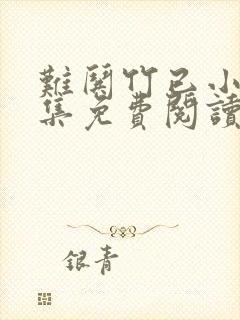 難鬨竹已小
集免費閱讀
銀青